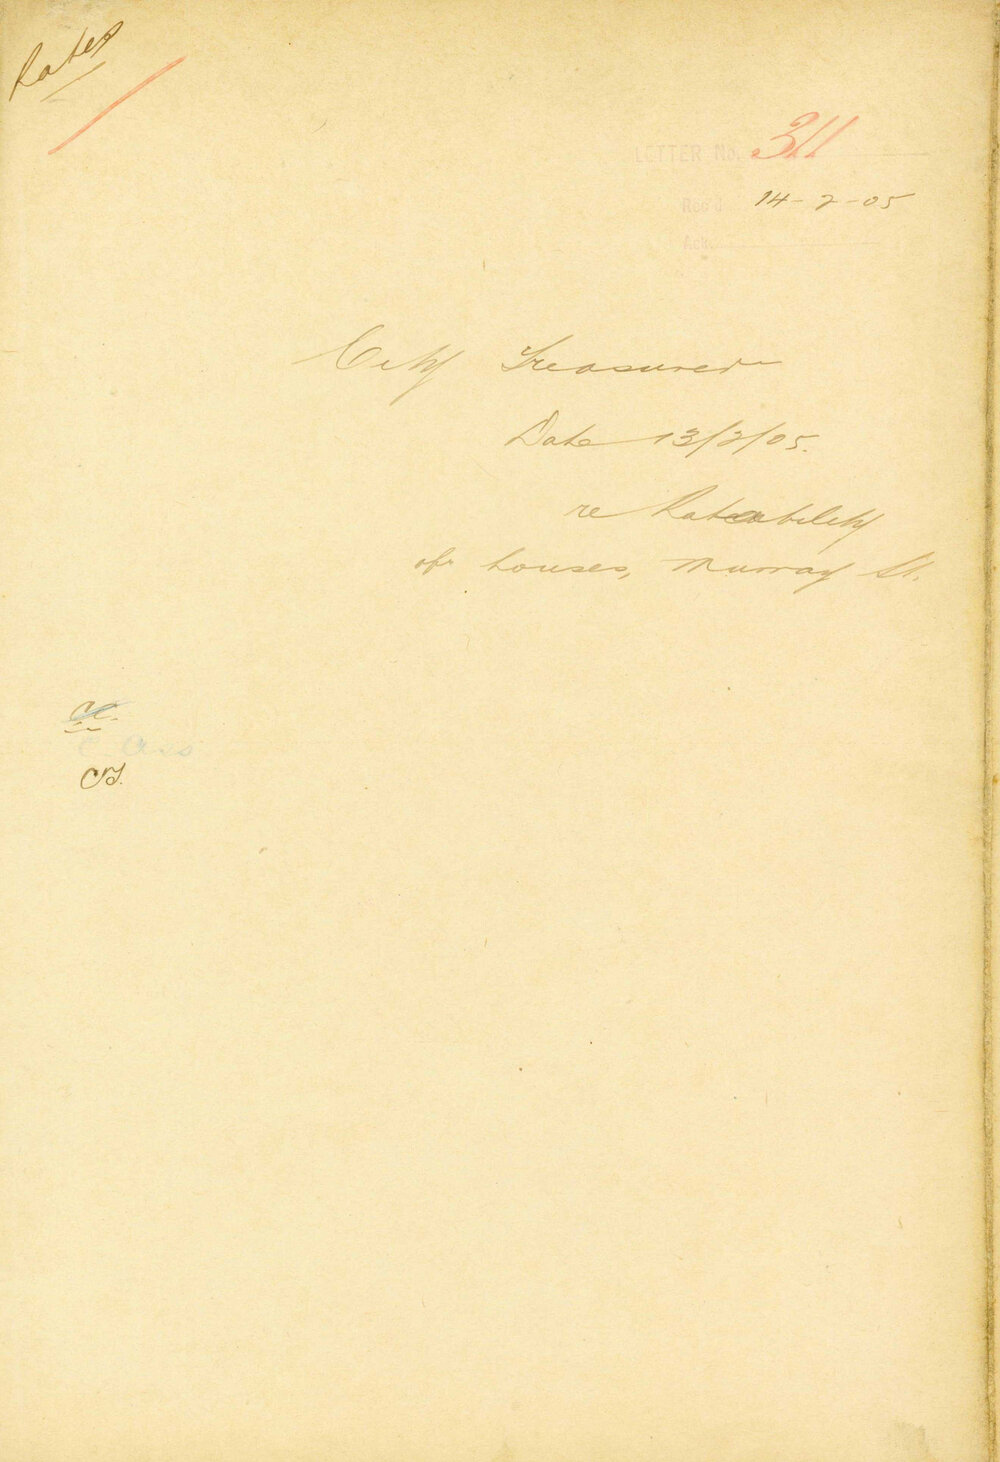 Rates
LETTER No. 311
Rec'd 14-2-05
Ack.
City Treasurer
Date 13/2/05.
re Rateability
of houses, Murray St.
C Ass
CT.